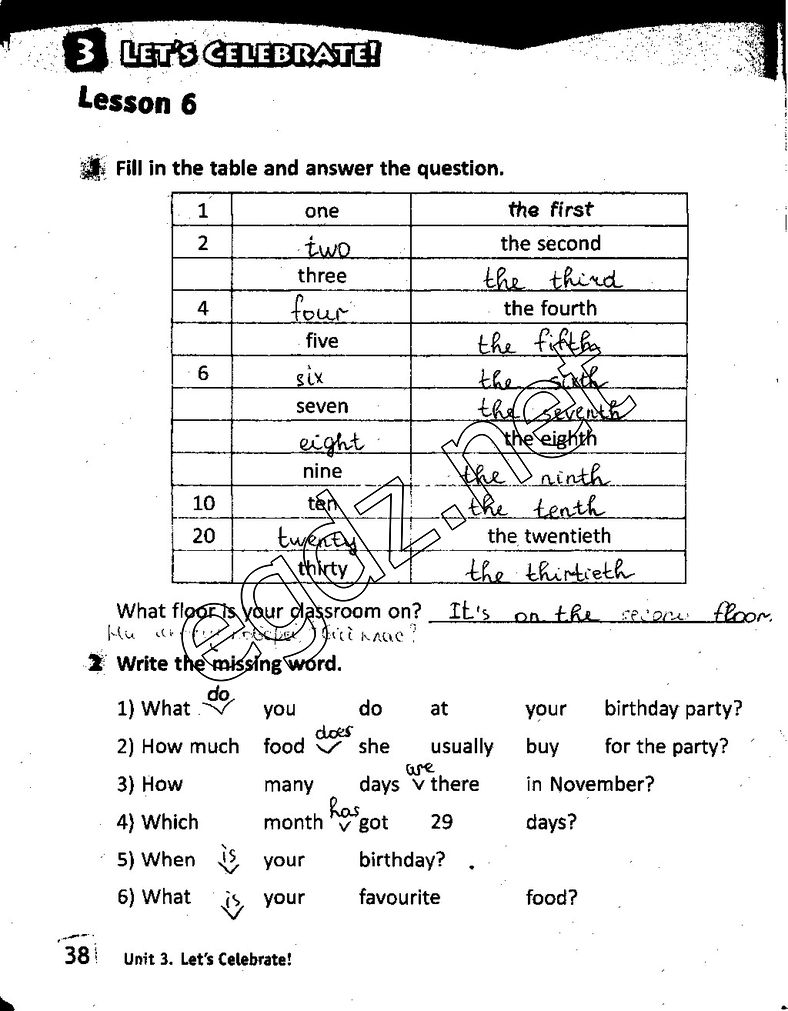 3 LET'S CELEBRATE!
Lesson 6
1 Fill in the table and answer the question.
1 one the first
2 two the second
three the third
4 four the fourth
five the fifth
6 six the sixth
seven the seventh
eight the eighth
nine the ninth
10 ten the tenth
20 twenty the twentieth
thirty the thirtieth
egdz.net
What floor is your classroom on? It's on the second floor.
2 Write the missing word.
1) What do you do at your birthday party?
2) How much food does she usually buy for the party?
3) How many days are there in November?
4) Which month has got 29 days?
5) When is your birthday?
6) What is your favourite food?
38 Unit 3. Let's Celebrate!